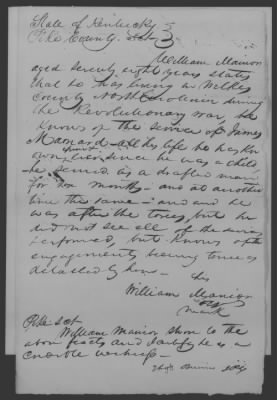 State of Kentucky
Pike County Sct
William Mainor
aged seventy eight years states
that he was living in Wilkes
County North Carolina during
the Revolutionary war, he
knows of the service of James
Maynard all his life he has kn
own ever since he was a child
he served as a drafted man
for six months and at another
time the same and and he
was after the tories, but he
did not see all of the service
performed, but knows of the
engagements
as
detailed by him
his
William Mainor
mark
Pike Sct
William Mainor sworn to the
above facts and I certify he is a
credible witness